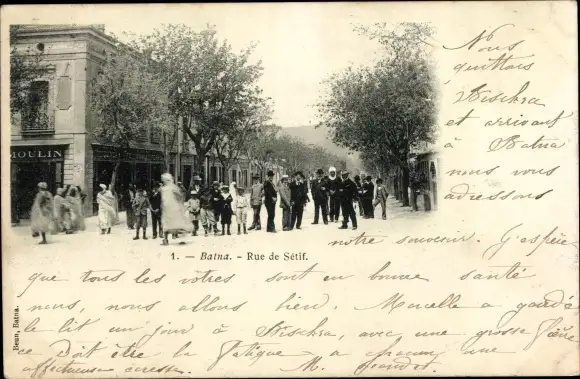 MOULIN
Nous
quittons
Biskra
et arrivant
à Batna
nous vous
adressons
notre souvenir. J'espère
1. — Batna. - Rue de Sétif.
que tous les vôtres sont en bonne santé
nous, nous allons bien. Marcelle a gardé
le lit un jour à Biskra, avec une grosse fièvre
ce doit être la fatigue. à chacun une
affectueuse caresse. M.
Beun, Batna.